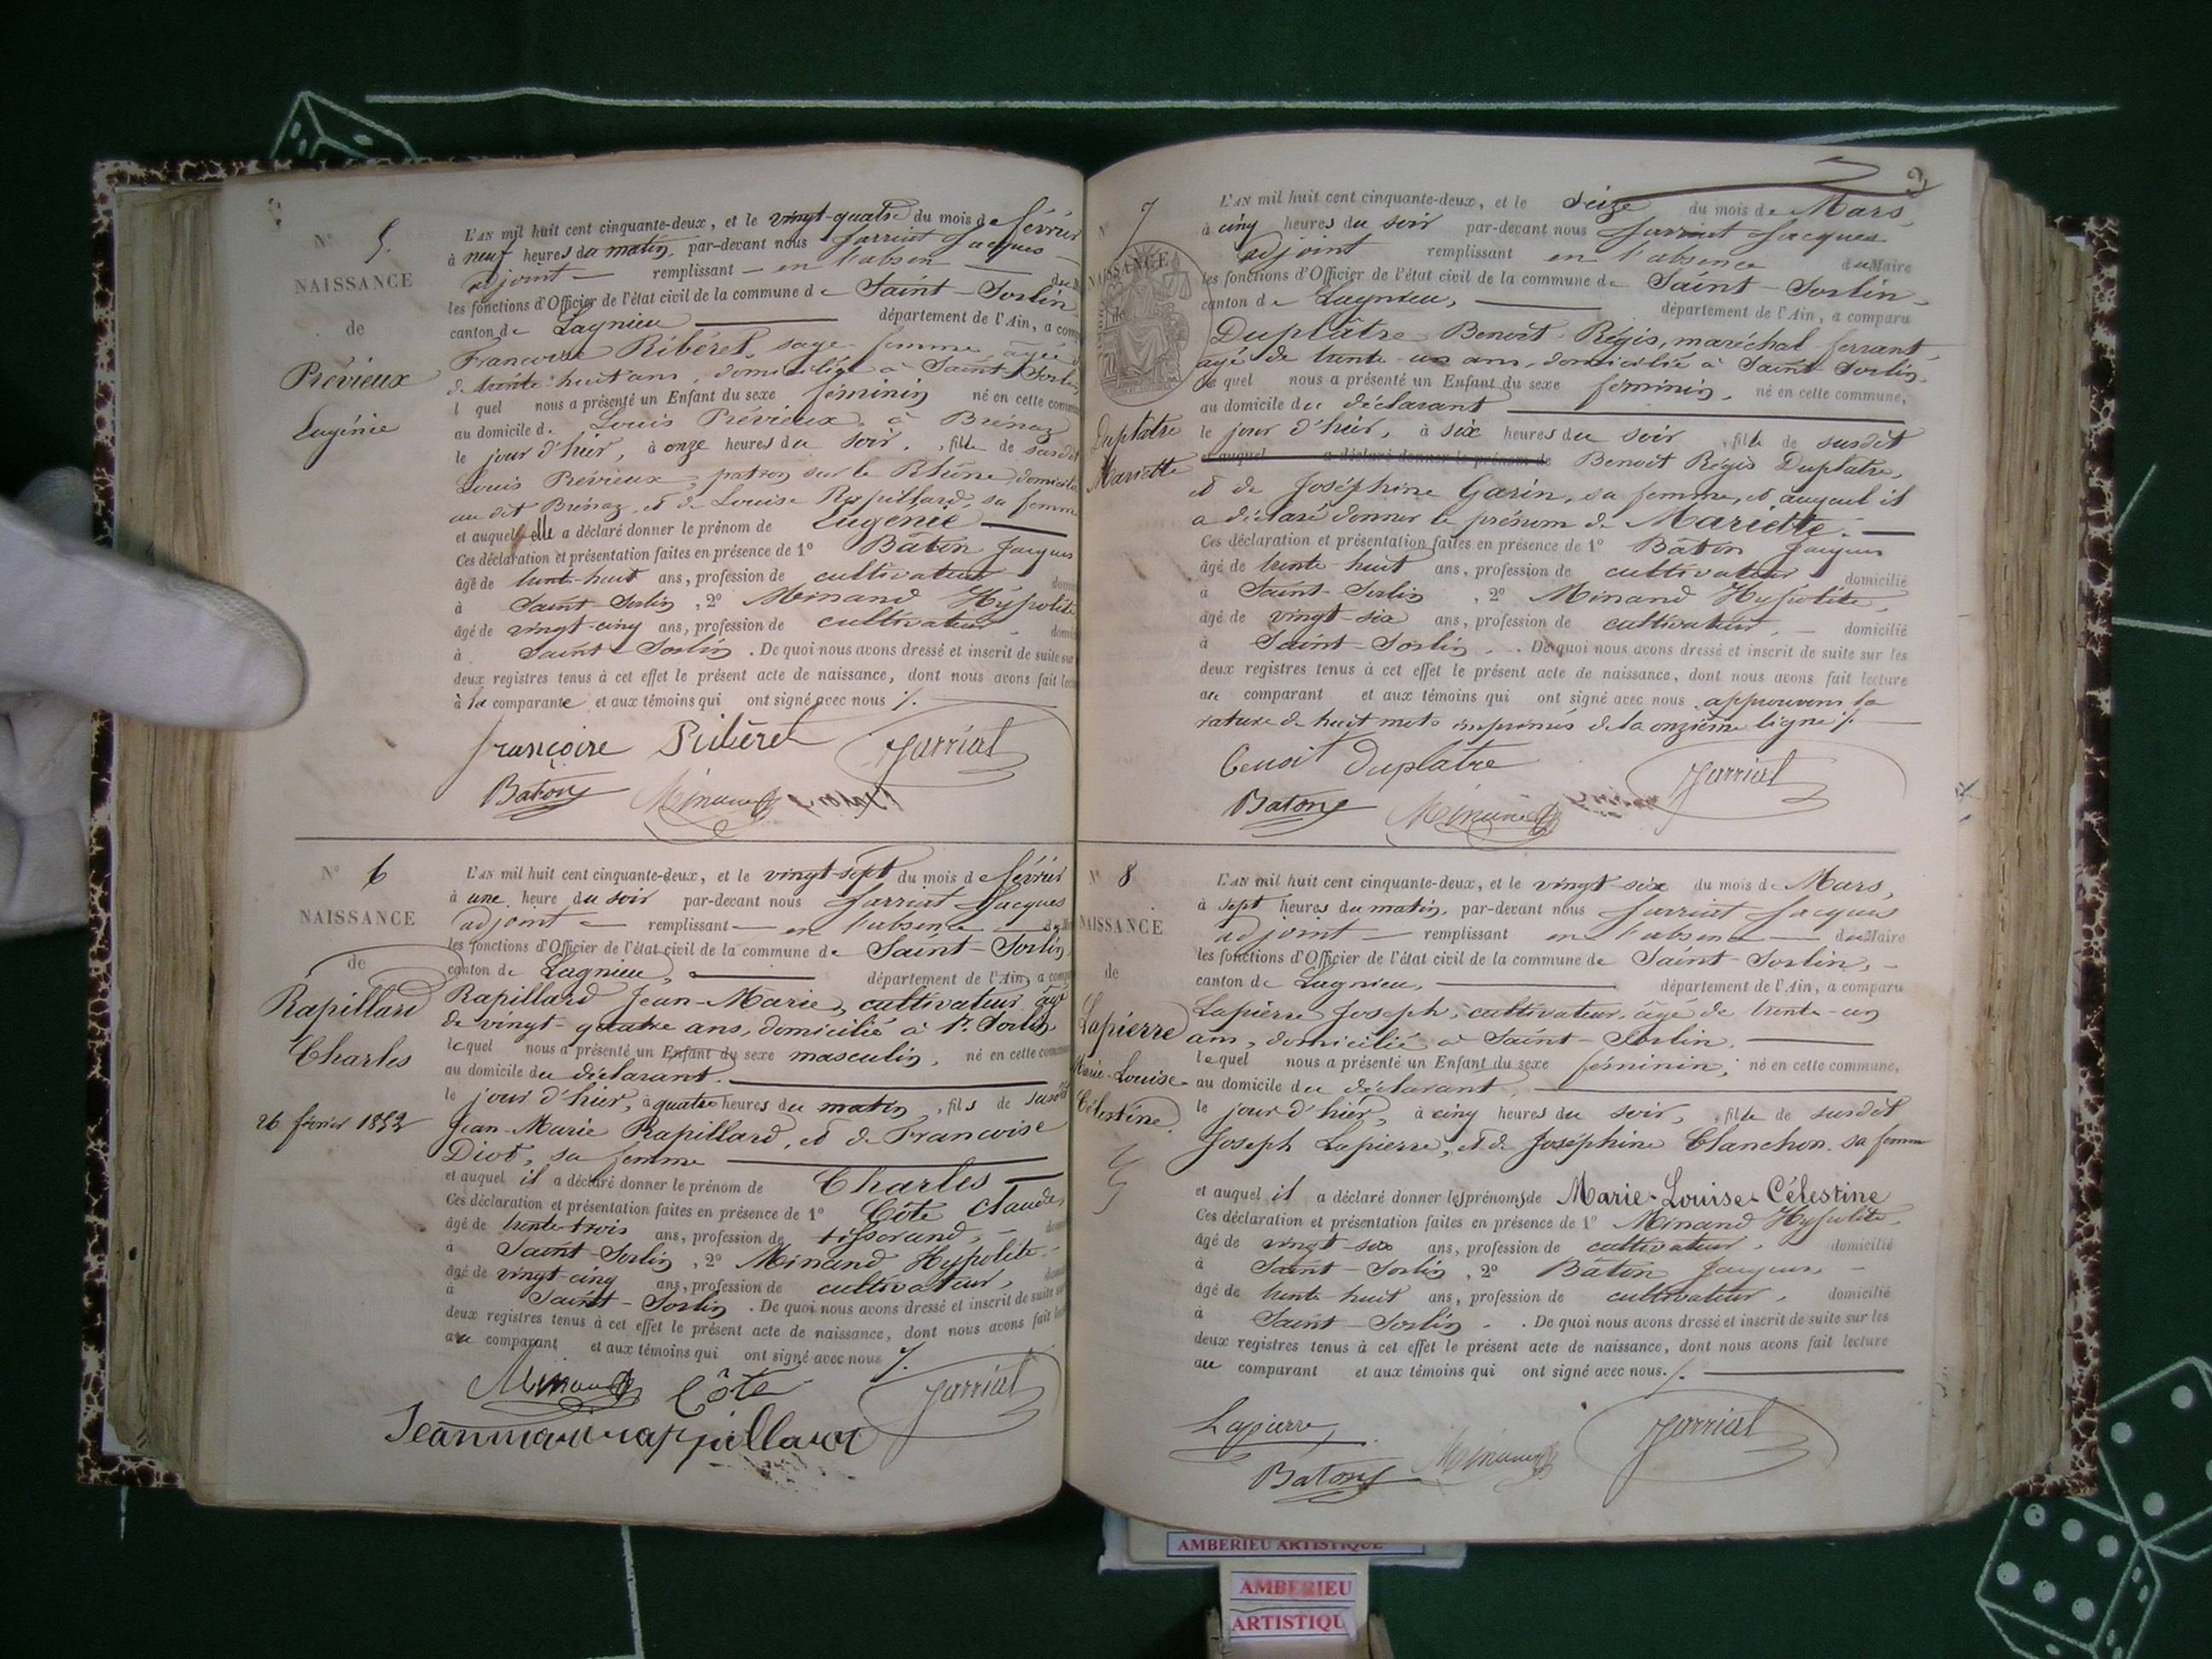 N° 5.
NAISSANCE
de
Prévieux
Eugénie
L'AN mil huit cent cinquante-deux, et le vingt-quatre du mois de février
à neuf heures du matin, par-devant nous Jarriat Jacques
adjoint remplissant en l'absence du
les fonctions d'Officier de l'état civil de la commune de Saint-Sorlin
canton de Lagnieu département de l'Ain, a comp
Francoise Ribéret, sage-femme âgée
de trente-huit ans, domiciliée à Saint-Sorlin
l quel nous a présenté un Enfant du sexe féminin né en cette commune
au domicile de Louis Prévieux à Brénaz
le jour d'hier, à onze heures du soir, fille de susdit
Louis Prévieux, patron sur le Rhône, domicilié
au dit Brénaz, et de Louise Rapillard, sa femme
et auquel elle a déclaré donner le prénom de Eugénie
Ces déclaration et présentation faites en présence de 1° Bâton Jacques
âgé de trente-huit ans, profession de cultivateur domi
à Saint-Sorlin, 2° Minand Hypolite
âgé de vingt-cinq ans, profession de cultivateur domi
à Saint-Sorlin. De quoi nous avons dressé et inscrit de suite sur
deux registres tenus à cet effet le présent acte de naissance, dont nous avons fait lec
à la comparante et aux témoins qui ont signé avec nous ./.
françoise Ribéret Jarriat
Baton Minand
N° 6
NAISSANCE
de
Rapillard
Charles
26 février 1852
L'AN mil huit cent cinquante-deux, et le vingt-sept du mois de février
à une heure du soir par-devant nous Jarriat Jacques
adjoint remplissant en l'absence du
les fonctions d'Officier de l'état civil de la commune de Saint-Sorlin
canton de Lagnieu, département de l'Ain, a comp
Rapillard Jean-Marie, cultivateur âgé
de vingt-quatre ans, domicilié à St. Sorlin
lequel nous a présenté un Enfant du sexe masculin, né en cette commune
au domicile du déclarant.
le jour d'hier, à quatre heures du matin, fils de susdit
Jean-Marie Rapillard, et de Francoise
Diot, sa femme
et auquel il a déclaré donner le prénom de Charles
Ces déclaration et présentation faites en présence de 1° Côte Claude,
âgé de trente-trois ans, profession de tisserand, domi
à Saint-Sorlin, 2° Minand Hypolite
âgé de vingt-cinq ans, profession de cultivateur,
à Saint-Sorlin. De quoi nous avons dressé et inscrit de suite
deux registres tenus à cet effet le présent acte de naissance, dont nous avons fait
au comparant et aux témoins qui ont signé avec nous ./.
Minand Côte Jarriat
Jeanmarie rappillard
2
N° 7
NAISSANCE
de
Duplatre
Mariette
L'AN mil huit cent cinquante-deux, et le seize du mois de Mars,
à cinq heures du soir par-devant nous Jarriat Jacques
adjoint remplissant en l'absence du Maire
les fonctions d'Officier de l'état civil de la commune de Saint-Sorlin
canton de Lagnieu, département de l'Ain, a comparu
Duplâtre Benoît Régis, maréchal ferrant
agé de trente-un ans, domicilié à Saint-Sorlin,
le quel nous a présenté un Enfant du sexe féminin, né en cette commune,
au domicile du déclarant
le jour d'hier, à six heures du soir, fille de susdit
et auquel a déclaré donner le prénom de Benoit Régis Duplatre,
et de Joséphine Garin, sa femme, et auquel il
a déclaré donner le prénom de Mariette.
Ces déclaration et présentation faites en présence de 1° Bâton Jacques
âgé de trente-huit ans, profession de cultivateur domicilié
à Saint-Sorlin, 2° Minand Hypolite,
âgé de vingt-six ans, profession de cultivateur, domicilié
à Saint-Sorlin. De quoi nous avons dressé et inscrit de suite sur les
deux registres tenus à cet effet le présent acte de naissance, dont nous avons fait lecture
au comparant et aux témoins qui ont signé avec nous. approuvons la
rature de huit mots imprimés de la onzième ligne ./.
Benoit Duplatre Jarriat
Baton Minand
N° 8
NAISSANCE
de
Lapierre
Marie-Louise-
Célestine.
L'AN mil huit cent cinquante-deux, et le vingt-six du mois de Mars,
à sept heures du matin, par-devant nous Jarriat Jacques
adjoint remplissant en l'absence du Maire
les fonctions d'Officier de l'état civil de la commune de Saint-Sorlin,
canton de Lagnieu, département de l'Ain, a comparu
Lapierre Joseph, cultivateur, âgé de trente-un
ans, domicilié à Saint-Sorlin.
lequel nous a présenté un Enfant du sexe féminin, né en cette commune,
au domicile du déclarant,
le jour d'hier, à cinq heures du soir, fille de susdit
Joseph Lapierre, et de Joséphine Clanchon, sa femme
et auquel il a déclaré donner les prénoms de Marie-Louise-Célestine
Ces déclaration et présentation faites en présence de 1° Minand Hypolite,
âgé de vingt-six ans, profession de cultivateur, domicilié
à Saint-Sorlin, 2° Bâton Jacques,
âgé de trente-huit ans, profession de cultivateur, domicilié
à Saint-Sorlin. De quoi nous avons dressé et inscrit de suite sur les
deux registres tenus à cet effet le présent acte de naissance, dont nous avons fait lecture
au comparant et aux témoins qui ont signé avec nous. ./.
Lapierre Jarriat
Baton Minand
AMBERIEU ARTISTIQUE
AMBERIEU
ARTISTIQU